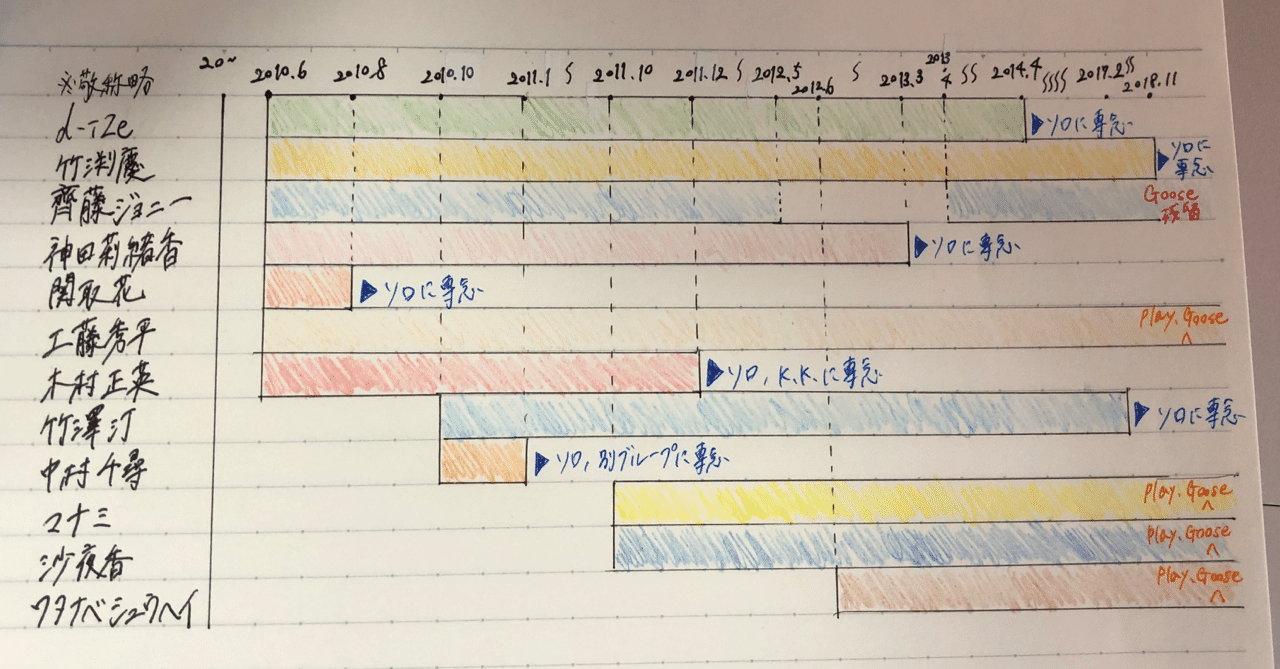 ※敬称略 20~ 2010.6 2010.8 2010.10 2011.1 〜 2011.10 2011.12 〜 2012.5 2012.6 〜 2013.3 2013.4 〜〜 2014.4 〜〜〜〜 2017.2 〜〜 2018.11
d-iZe ▶ソロに専念
竹渕慶 ▶ソロに専念
齊藤ジョニー Goose残留
神田莉緒香 ▶ソロに専念
関取花 ▶ソロに専念
工藤秀平 Play.Gooseへ
木村正英 ▶ソロ,K.K.に専念
竹澤汀 ▶ソロに専念
中村千尋 ▶ソロ,別グループに専念
マナミ Play.Gooseへ
沙夜香 Play.Gooseへ
ワタナベシュウヘイ Play.Gooseへ